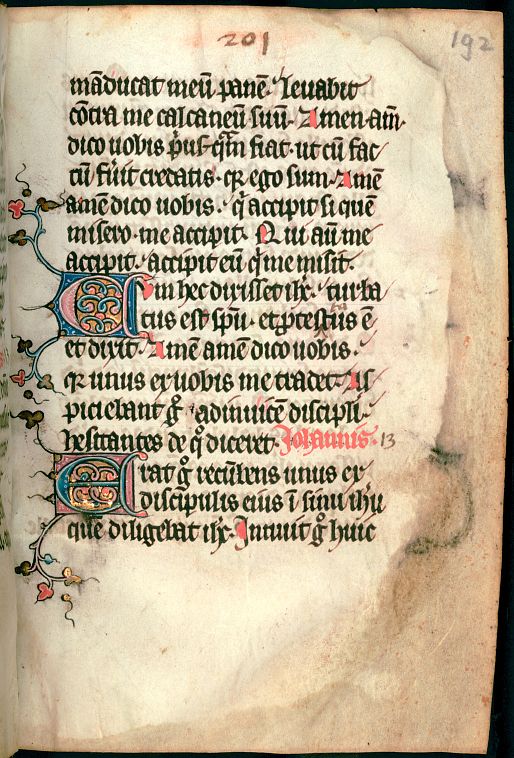 201
192
māducat meū panē. levabit
cōtra me calcaneū suū. Amen am̄.
dico vobis pius qm̄ fiat. ut cū fac
tū fu̓it credatis. qr ego sum. Amē
amē dico vobis. q̄ accipit si quē
misero. me accipit. Qui aū me
accipit. accipit eū q̄ me misit.
Cum hec dixisset ihc̄. turba
tus est spū. et ptestatus ē
et dixit. Amē amē dico vobis.
qr unus ex vobis me tradet. As
piciebant gͦ adinvicē discipli.
hesitantes de qͦ diceret. Johannis. 13
Erat gͦ recūbens unus ex
discipulis eius ī sinu ihū
que diligebat ihc̄. Innuit gͦ huic